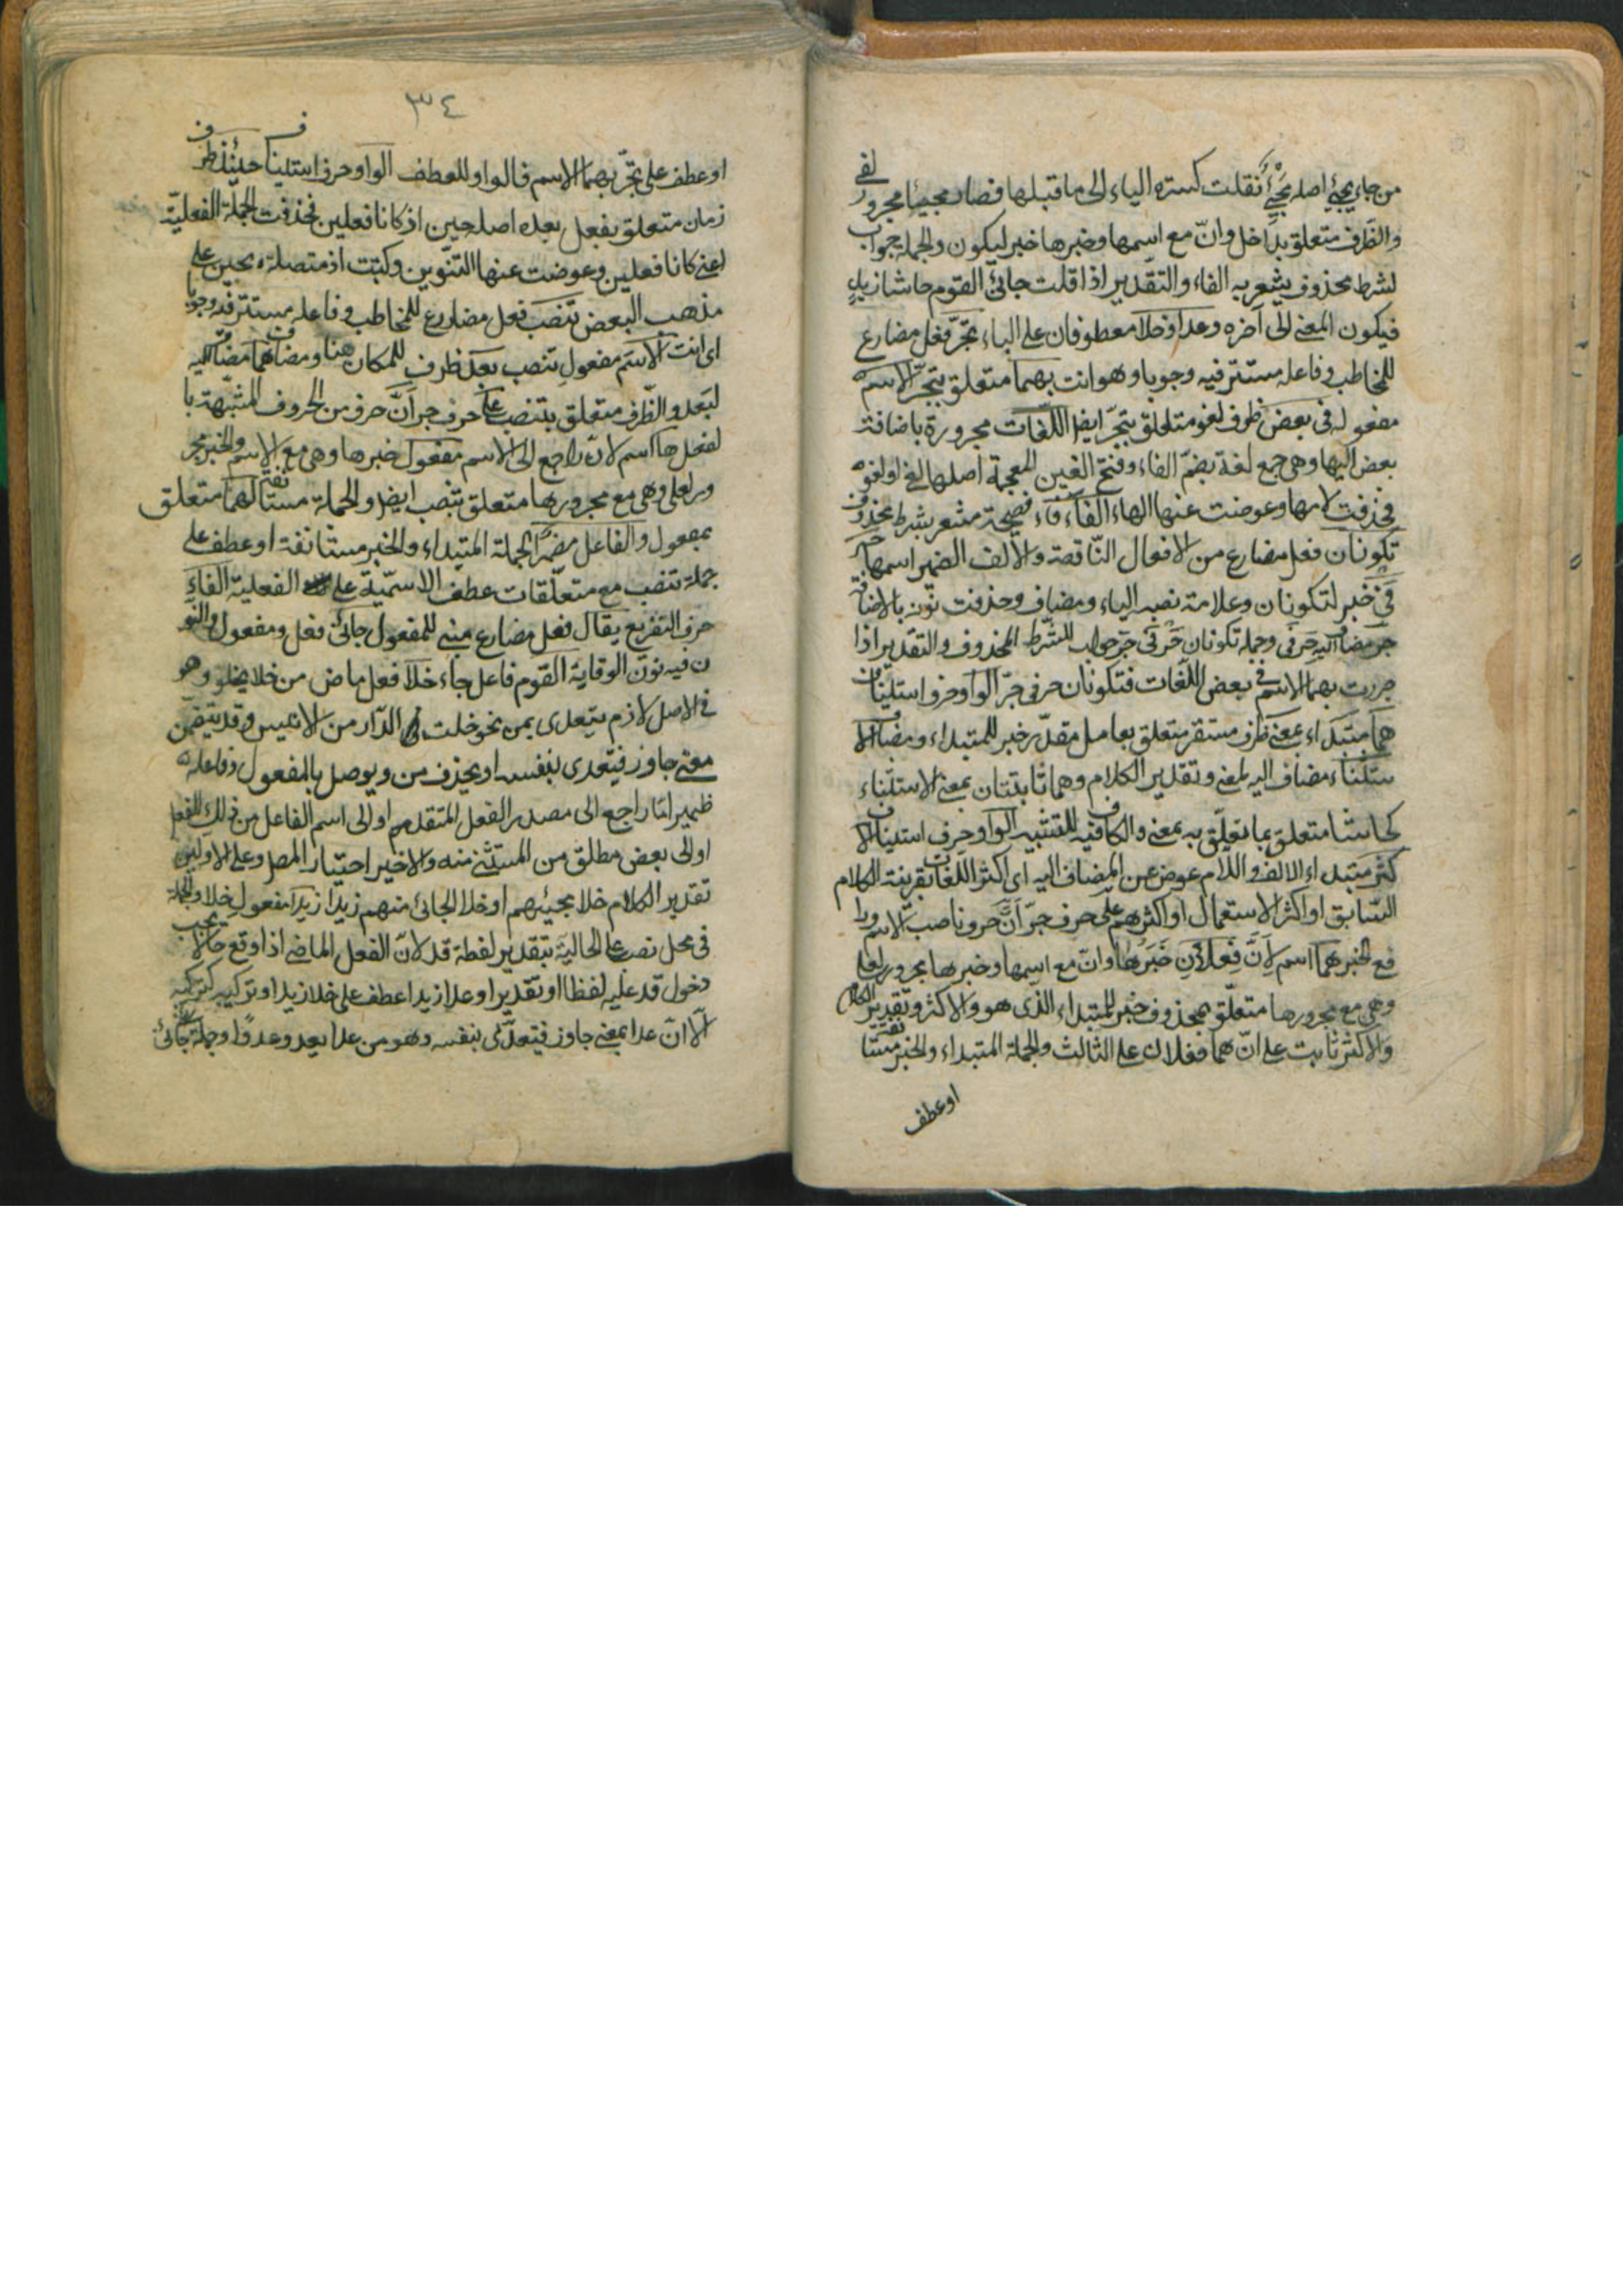 من جاء يجئ اصله مجيئ نقلت كسرة الياء الى ما قبلها فصار مجيئا مجرور لفى
والظرف متعلق بداخل وان مع اسمها وخبرها خبر ليكون والجملة جواب
لشرط محذوف يشعر به الفاء والتقدير اذا قلت جائنى القوم حاشا زيد
فيكون المعنى الى آخره وعدا وخلا معطوفان على الباء تجر فعل مضارع
للمخاطب وفاعله مستتر فيه وجوبا وهو انت بهما متعلق بتجر الاسم
مفعوله فى بعض ظرف لغو متعلق بتجر ايضا اللغات مجرورة باضافة
بعض اليها وهى جمع لغة بضم الفاء وفتح الغين المعجمة اصلها لغى او لغو
فحذفت لامها وعوضت عنها الهاء الفاء فاء فصيحة مشعر بشرط محذوف
تكونان فعل مضارع من الافعال الناقصة والالف الضمير اسمها
فى خبر لتكونان وعلامة نصبه الياء ومضاف وحذفت نونه بالاضافة
جر مضاف اليه حرفى وجملة تكونان حرفى جر جواب للشرط المحذوف والتقدير اذا
جررت بهما الاسم فى بعض اللغات فتكونان حرفى جر الواو حرف استيناف
هما مبتداء بمعنى ظرف مستقر متعلق بعامل مقدر خبر للمبتداء ومضاف الا
ستثناء مضاف اليه لمعنى وتقدير الكلام وهما ثابتتان بمعنى الاستثناء
كحاشا متعلق بما تعلق به بمعنى والكاف فيه للتشبيه الواو حرف استيناف الا
كثر مبتداء الالف واللام عوض عن المضاف اليه اى اكثر اللغات بقرينة الكلام
السابق او اكثر الاستعمال او اكثرهم على حرف جر ان حرف ناصب الاسم ورا
فع لخبر هما اسم لان فعلان خبرها وان مع اسمها وخبرها مجرور لعلى
وهى مع مجرورها متعلق بمحذوف خبر للمبتداء الذى هو والاكثر وتقدير الكلام
والاكثر ثابت على ان هما فعلان على الثالث والجملة المبتداء والخبر مستانفة
او عطف
٣٤
او عطف على تجر بهما الاسم فالواو للعطف الواو حرف استيناف حينئذ ظرف
زمان متعلق بفعل بعده اصله حين اذ كانا فعلين فحذفت الجملة الفعلية
اعنى كانا فعلين وعوضت عنها التنوين وكتبت اذ متصلة بحين على
مذهب البعض تنصب فعل مضارع للمخاطب وفاعله مستتر فيه وجوبا
اى انت الاسم مفعول تنصب بعد ظرف للمكان هنا ومضاف هما مضاف اليه
لبعد والظرف متعلق بتنصب على حرف جر ان حرف من الحروف المشبهة با
لفعل ها اسم لان راجع الى الاسم مفعول خبرها وهى مع الاسم والخبر مجر
ور لعلى وهى مع مجرورها متعلق بتنصب ايضا والجملة مستانفة لهما متعلق
بمفعول والفاعل مضمر الجملة المبتداء والخبر مستانفة او عطف على
جملة تنصب مع متعلقات عطف الاسمية على الفعلية الفاء
حرف التفريع يقال فعل مضارع مبنى للمفعول جائنى فعل ومفعول والنو
ن فيه نون الوقاية القوم فاعل جاء خلا فعل ماض من خلا يخلو وهو
فى الاصل لازم يتعدى بمن نحو خلت الدار من الانيس وقد يتضمن
معنى جاوز فيتعدى بنفسه او يحذف من ويوصل بالمفعول وفاعله
ضمير اما راجع الى مصدر الفعل المتقدم او الى اسم الفاعل من ذلك الفعل
او الى بعض مطلق من المستثنى منه والاخير اختيار المص وعلى الاولين
تقدير الكلام خلا مجيئهم او خلا الجائى منهم زيدا زيدا مفعول خلا والجملة
فى محل نصب على الحالية بتقدير لفظة قد لان الفعل الماضى اذا وقع حالا يجب
دخول قد عليه لفظا او تقديرا وعدا زيدا عطف على خلا زيدا وتركيبه كتركيبه
الا ان عدا بمعنى جاوز فيتعدى بنفسه وهو من عدا يعدو عدوا وجملة جائنى